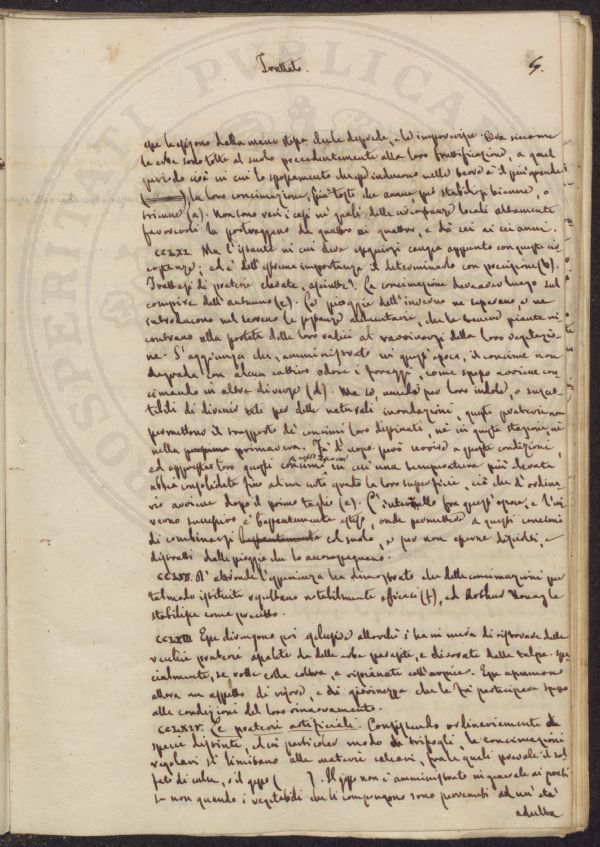 Trattato. 5.
che le esigono dalla meno che le degrada, e le impoverisce. Ora siccome
le erbe sono tolte al suolo precedentemente alla loro fruttificazione, a quel
periodo cioè in cui lo spossamento che inducono nelle è il più grande
la loro concimazione, più tosto che annua può stabilirsi bienne, o
trienne (a). Non sono rari i casi ne' quali delle circostanze locali altamente
favorevoli la protraggono da quattro ai quattro, e da sei ai sei anni.
CCLXI. Ma l'istante in cui deve eseguirsi cangia appunto con queste cir
costanze; ed è dell'estrema importanza il determinarlo con precisione (b).
Trattasi di praterie elevate, asciutte? La concimazione deve aver luogo sul
compire dell'autunno (c). Le pioggie dell'inverno ne separano e ne
introducono nel terreno le sostanze alimentarie, che le tenere piante in
contrano alla portata delle loro radici al ravvivarsi della loro vegetazio
ne. S'aggiunga che, amministrato in quest'epoca, il concime non
degrada con alcun cattivo odore i foraggi, come spesso avviene con
cimando in altre diverse (d). Ma se, umide per loro indole, o suscet
tibili di divenir tali per delle naturali inondazioni, queste praterie non
permettono il trasporto de' concimi loro destinati, nè in questa stagione, nè
nella primavera. Fa d'uopo però servire a queste condizioni,
ed apprestar loro questi concimi nell'epoca in cui una temperatura più elevata
abbia consolidata fino ad un certo grado la loro superficie, ciò che d'ordina
rio avviene dopo il primo taglio (e). L'intervallo fra quest'epoca, e l'in
verno successivo è bastantemente esteso, onde permettere a questi concimi
di combinarsi bastantemente col suolo, e per non esserne disciolti, e
distratti dalle pioggie che lo accompagnano.
CCLXII. D'altronde l'esperienza ha dimostrato che delle concimazioni per
tal modo istituite resultano notabilmente efficaci (f), ed Arthur Young le
stabilisce come precetto.
CCLXIII. Esse divengono poi esclusive allorchè s'ha in mira di ristorare delle
vecchie praterie assalite da delle erbe parasite, e disertate dalle talpe spe
cialmente, se rotte colla coltura, e rispianate coll'erpice. Esse assumono
allora un aspetto di vigore, e di giovinezza che le fa partecipare spesso
alle condizioni del loro rinnovamento.
CCLXIV. Le praterie artificiali. Consistendo ordinariamente di
specie distinte, ed in particolar modo di trifogli, le concimazioni
regolari si limitano alle materie calcari, fra le quali prevale il sol
fato di calce, o il gesso ( ). Il gesso non è amministrato in generale ai prati
se non quando i vegetabili che li compongono sono pervenuti ad un'età
adulta